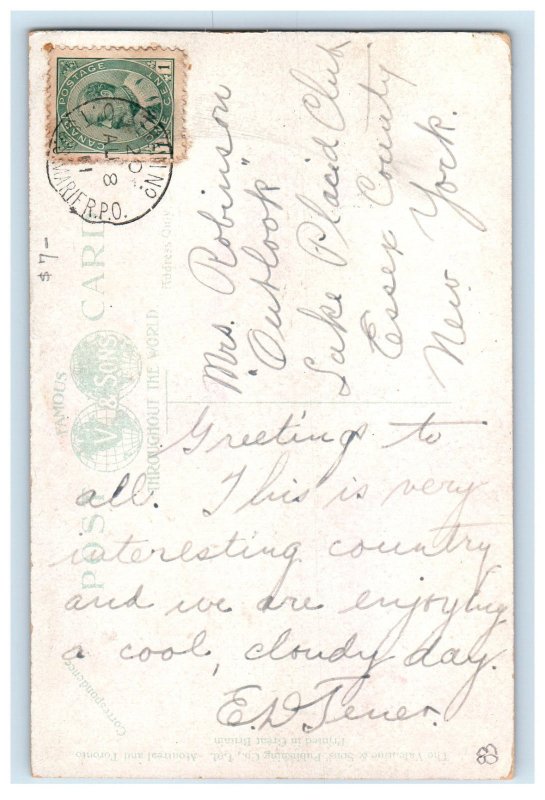 CANADA POSTAGE
ONE CENT
1
AU 8
MARIE R.P.O.
$7-
FAMOUS
POST CARD
V. & SONS
THROUGHOUT THE WORLD
Address Only
Mrs. Robinson
"Outlook
Lake Placid Club
Essex County
New York.
Correspondence
Greeting to
all. This is very
interesting country
and we are enjoying
a cool, cloudy day.
E.D. Tener.
The Valentine & Sons' Publishing Co., Ltd. Montreal and Toronto
Printed in Great Britain